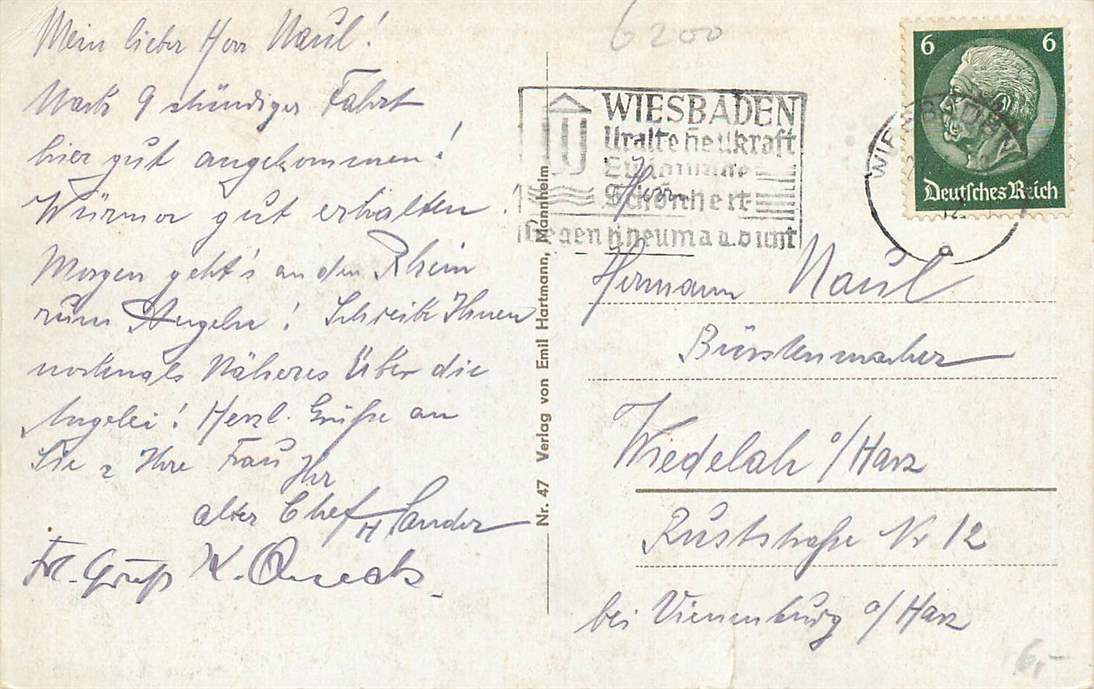 Mein lieber Herr Naul!
Nach 9 stündiger Fahrt
hier gut angekommen!
Würmer gut erhalten!
Morgen geht's an den Rhein
zum Angeln! Schreibe Ihnen
nochmals Näheres über die
Angelei! Herzl. Grüße an
Sie u Ihre Frau
Ihr
alter Chef H Sander
Fr. Gruß K.
Nr. 47 Verlag von Emil Hartmann, Mannheim
6200
WIESBADEN
Uralte Heilkraft
Schönheit
Gegen Rheuma u. Gicht
6 6
Deutsches Reich
WIESBADEN
a
Herrn
Hermann Naul
Bürstenmacher
Wiedelah a/Harz
Ruststraße Nr 12
bei Vienenburg a/Harz
6,-